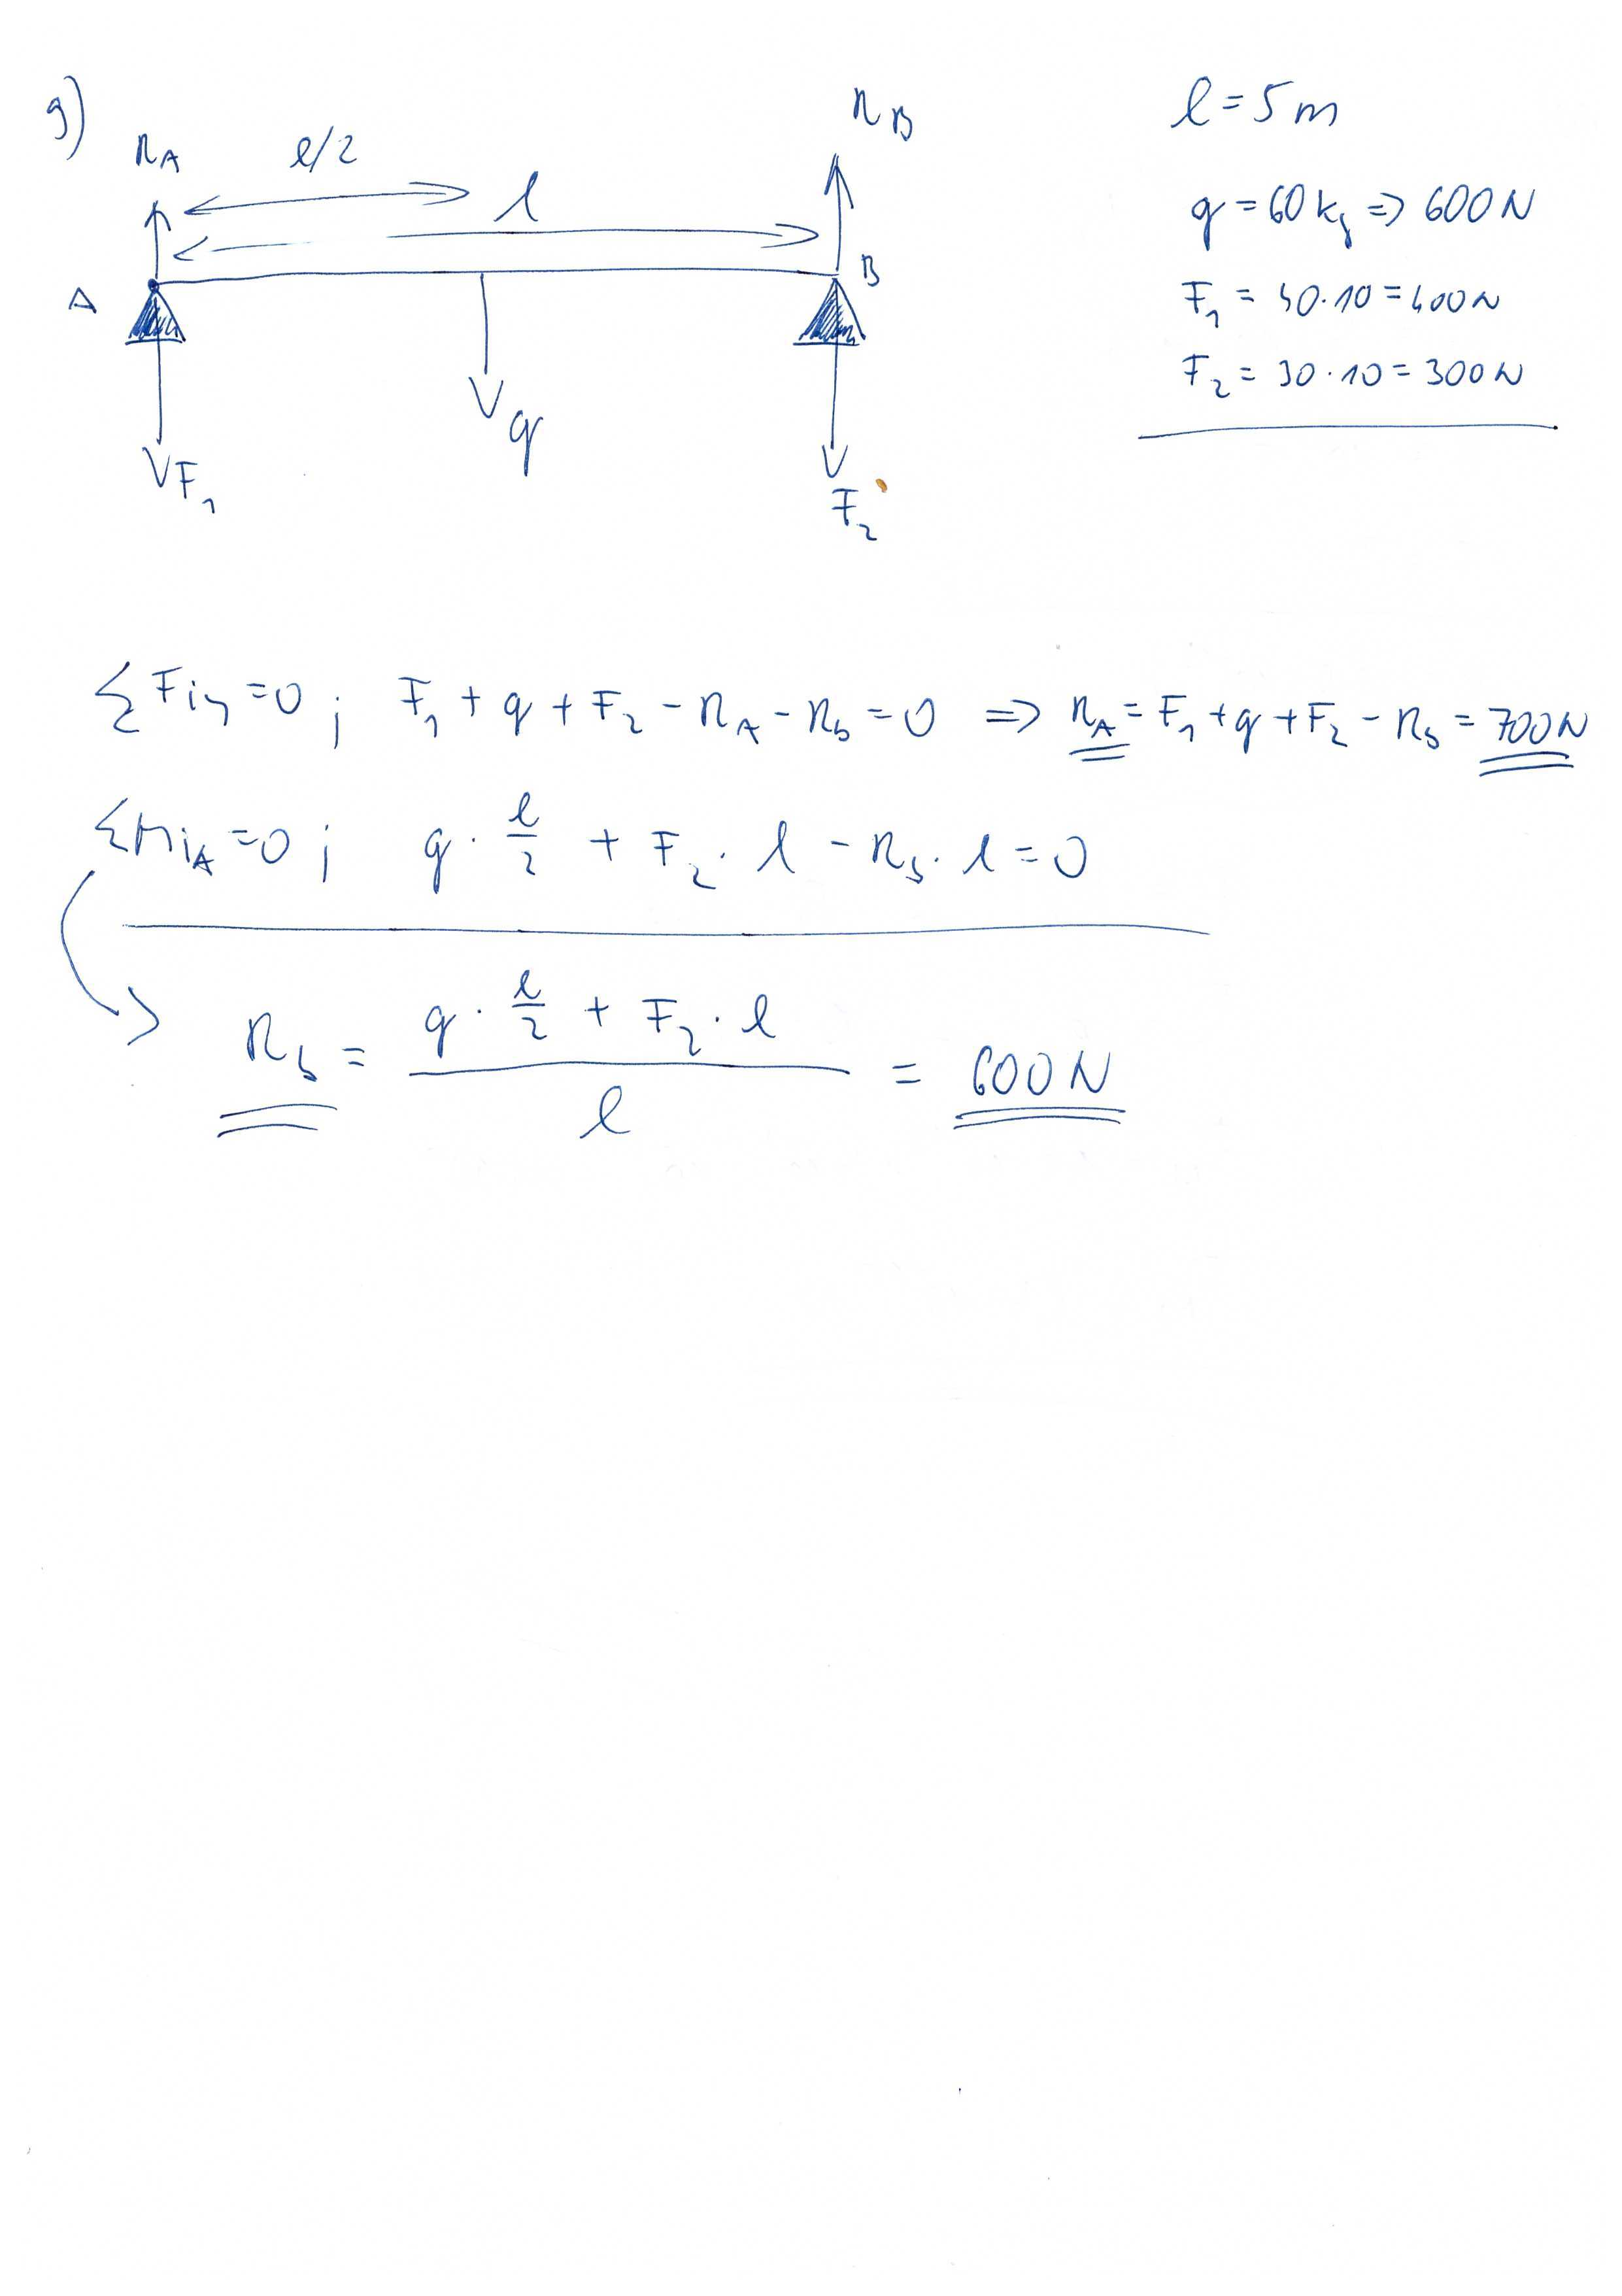 9)
R_A
l/2
l
R_B
A
B
F_1
q
F_2
l = 5 m
q = 60 kg => 600 N
F_1 = 40 · 10 = 400 N
F_2 = 30 · 10 = 300 N
ΣF_iy = 0 ; F_1 + q + F_2 - R_A - R_b = 0 => R_A = F_1 + q + F_2 - R_b = 700 N
ΣM_iA = 0 ; q · l/2 + F_2 · l - R_b · l = 0
R_b = (q · l/2 + F_2 · l) / l = 600 N